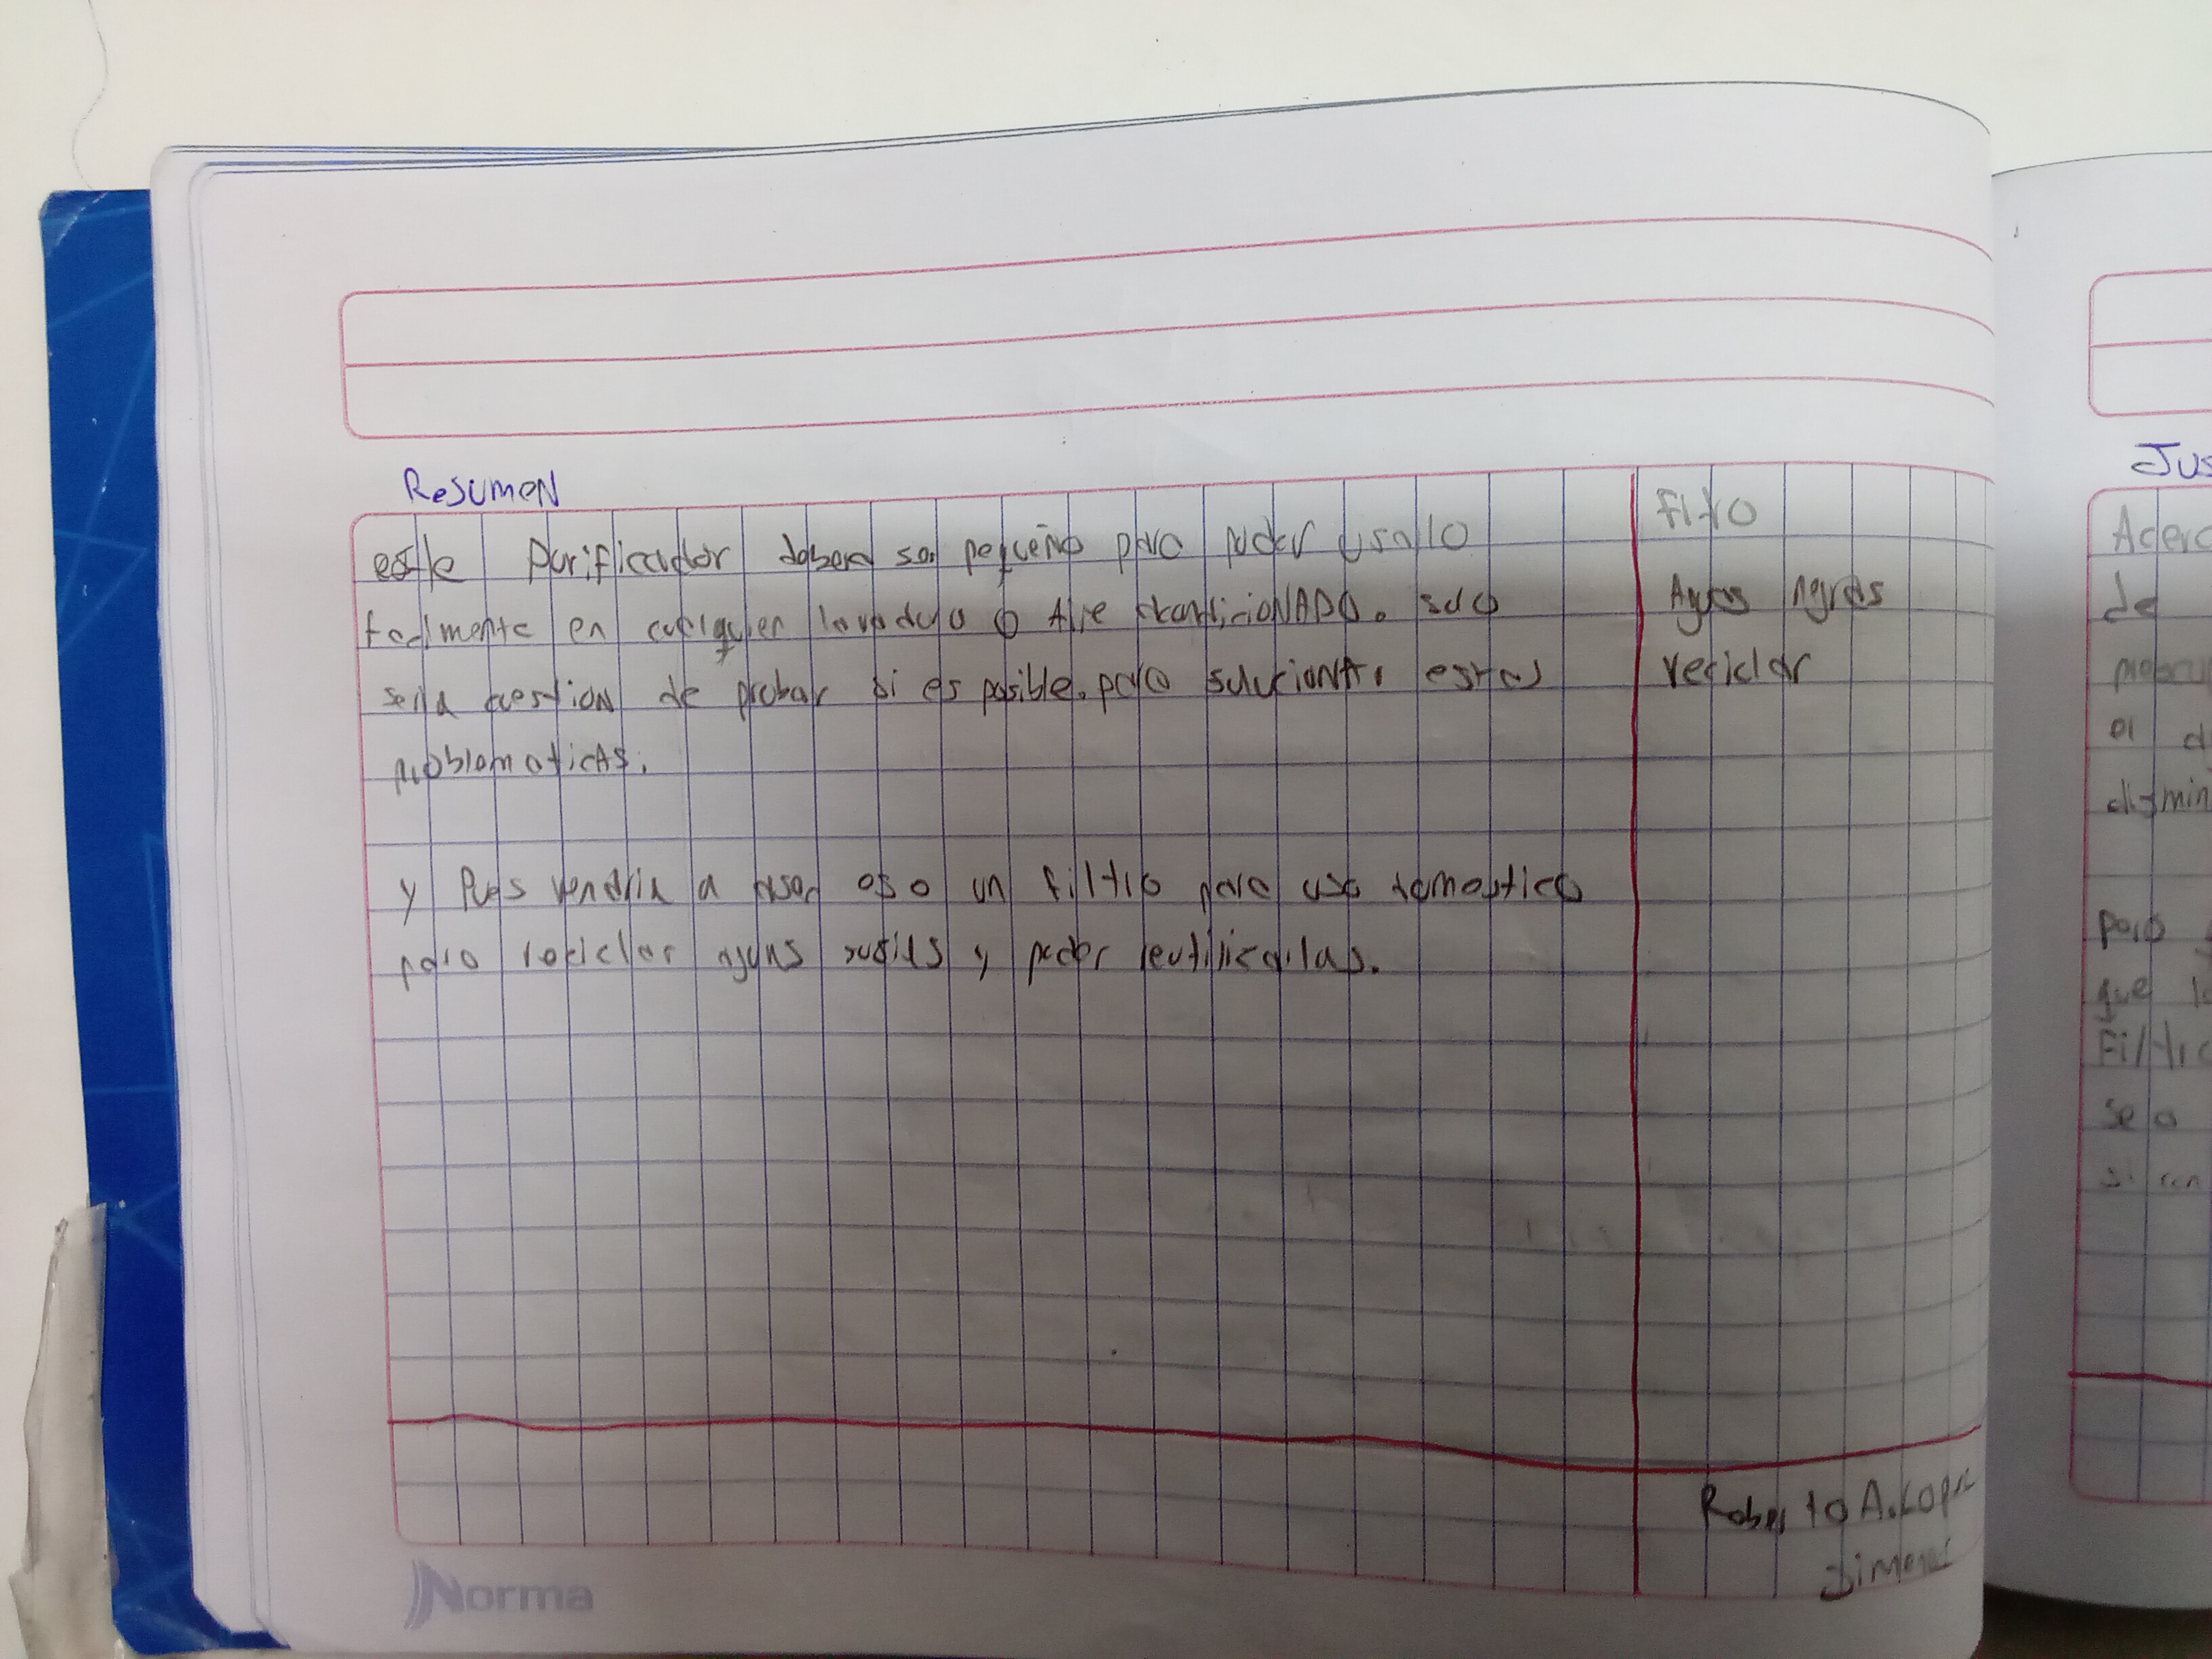 Resumen
este Purificador debera ser pequeño para poder usarlo
facilmente en cualquier lavadero o Aire acondicioNADO. solo
seria cuestion de probar si es posible. para solucionAr estas
problematicAs.
y Pues vendria a pasar eso un filtro para uso domestico
para reciclar aguas sucias y poder reutilizarlas.
Filtro
Aguas negras
reciclar
Roberto A. Lopez
Jimenez
Norma
Jus
Acerc
de
el d
dismin
para
que l
Filtr
sea
si con